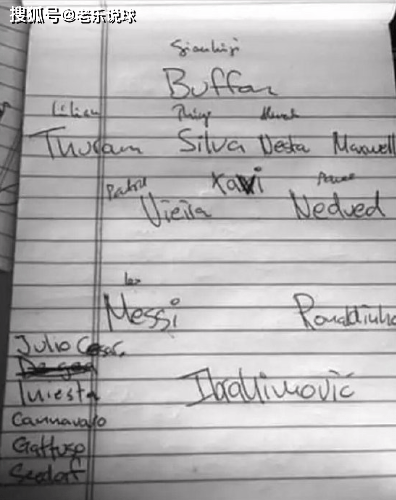 搜狐号@老乐说球
Gianluigi
Buffon
Lilian Thiago
Thuram Silva Nesta Maxwell
Patrick Xavi Pavel
Vieira Nedved
Leo
Messi Ronaldinho
Julio Cesar
De gea
Iniesta Ibrahimovič
Cannavaro
Gattuso
Seedorf